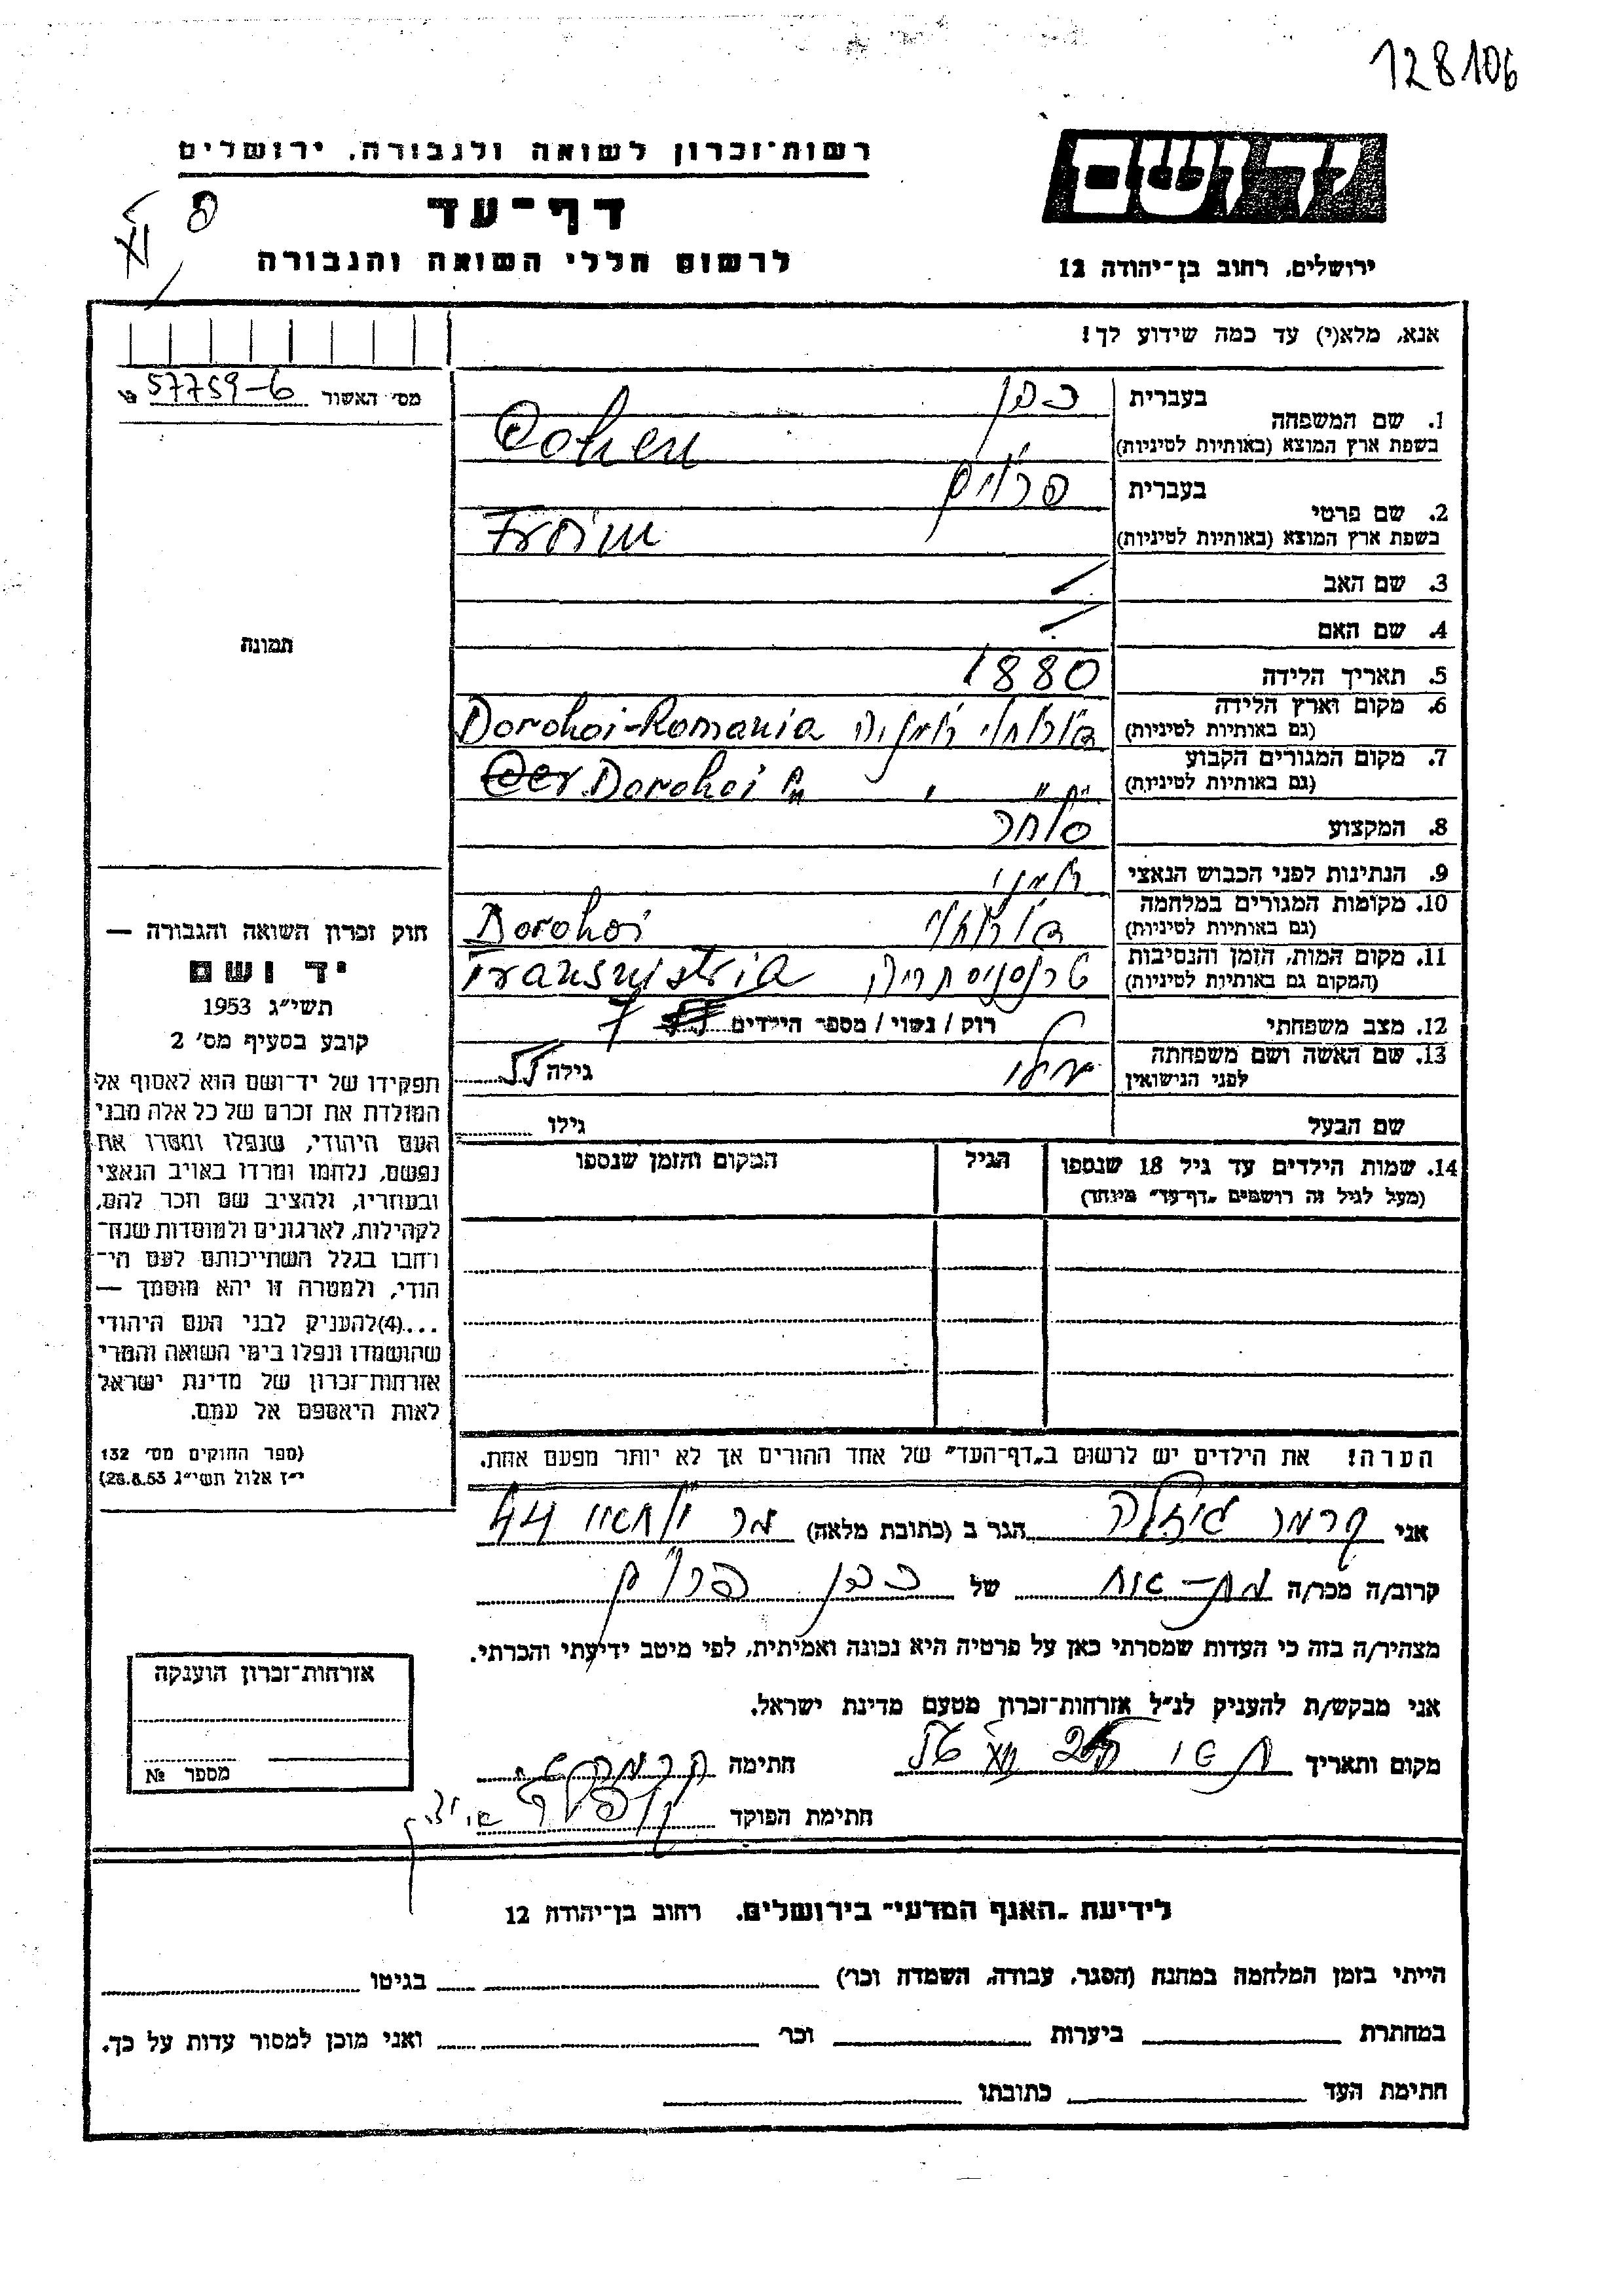 128106
רשות־זכרון לשואה ולגבורה, ירושלים
יד ושם
דף־עד
לרשום חללי השואה והגבורה
ירושלים, רחוב בן־יהודה 12
אנא, מלא(י) עד כמה שידוע לך!
מס׳ האשור 57759-6
בעברית כהן
1. שם המשפחה
בשפת ארץ המוצא (באותיות לטיניות) Cohen
בעברית פרוים
2. שם פרטי
בשפת ארץ המוצא (באותיות לטיניות) Froim
3. שם האב
4. שם האם
תמונה
5. תאריך הלידה 1880
6. מקום וארץ הלידה
(גם באותיות לטיניות) דורוחוי רומניה Dorohoi-Romania
7. מקום המגורים הקבוע
(גם באותיות לטיניות) " " Dorohoi
8. המקצוע סוחר
9. הנתינות לפני הכבוש הנאצי רומני
10. מקומות המגורים במלחמה
(גם באותיות לטיניות) דורוחוי Dorohoi
11. מקום המות, הזמן והנסיבות
(המקום גם באותיות לטיניות) טרנסניסתריה Transnistria
12. מצב משפחתי רוק / נשוי / מספר הילדים 7
13. שם האשה ושם משפחתה
לפני הנישואין גילה
שם הבעל גילו
14. שמות הילדים עד גיל 18 שנספו הגיל המקום והזמן שנספו
(מעל לגיל זה רושמים „דף־עד״ מיוחד)
הערה! את הילדים יש לרשום ב„דף־העד״ של אחד ההורים אך לא יותר מפעם אחת.
חוק זכרון השואה והגבורה —
יד ושם
תשי״ג 1953
קובע בסעיף מס׳ 2
תפקידו של יד־ושם הוא לאסוף אל
המולדת את זכרם של כל אלה מבני
העם היהודי, שנפלו ומסרו את
נפשם, נלחמו ומרדו באויב הנאצי
ובעוזריו, ולהציב שם וזכר להם,
לקהילות, לארגונים ולמוסדות שנח־
רבו בגלל השתייכותם לעם הי־
הודי, ולמטרה זו יהא מוסמך —
...(4)להעניק לבני העם היהודי
שהושמדו ונפלו בימי השואה והמרי
אזרחות־זכרון של מדינת ישראל
לאות היאספם אל עמם.
(ספר החוקים מס׳ 132
י״ז אלול תשי״ג 28.8.53)
אני קרמר גיזלה הגר ב (כתובת מלאה) 44
קרוב/ה מכר/ה של כהן פרוים
מצהיר/ה בזה כי העדות שמסרתי כאן על פרטיה היא נכונה ואמיתית, לפי מיטב ידיעתי והכרתי.
אני מבקש/ת להעניק לנ״ל אזרחות־זכרון מטעם מדינת ישראל.
מקום ותאריך חתימה
חתימת הפוקד
אזרחות־זכרון הוענקה
מספר №
לידיעת „האגף המדעי״ בירושלים, רחוב בן־יהודה 12
הייתי בזמן המלחמה במחנה (הסגר, עבודה, השמדה וכו׳) בגיטו
במחתרת ביערות וכו׳ ואני מוכן למסור עדות על כך.
חתימת העד כתובתו